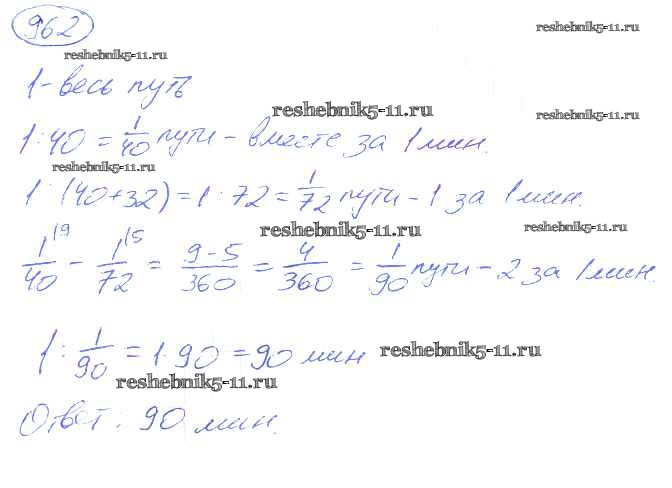 962
reshebnik5-11.ru
reshebnik5-11.ru
1 - весь путь
reshebnik5-11.ru
reshebnik5-11.ru
1 : 40 = 1/40 пути - вместе за 1 мин.
reshebnik5-11.ru
1 : (40+32) = 1 : 72 = 1/72 пути - 1 за 1 мин.
reshebnik5-11.ru
reshebnik5-11.ru
1/40 |9 - 1/72 |5 = (9-5)/360 = 4/360 = 1/90 пути - 2 за 1 мин.
1 : 1/90 = 1·90 = 90 мин
reshebnik5-11.ru
reshebnik5-11.ru
Ответ: 90 мин.